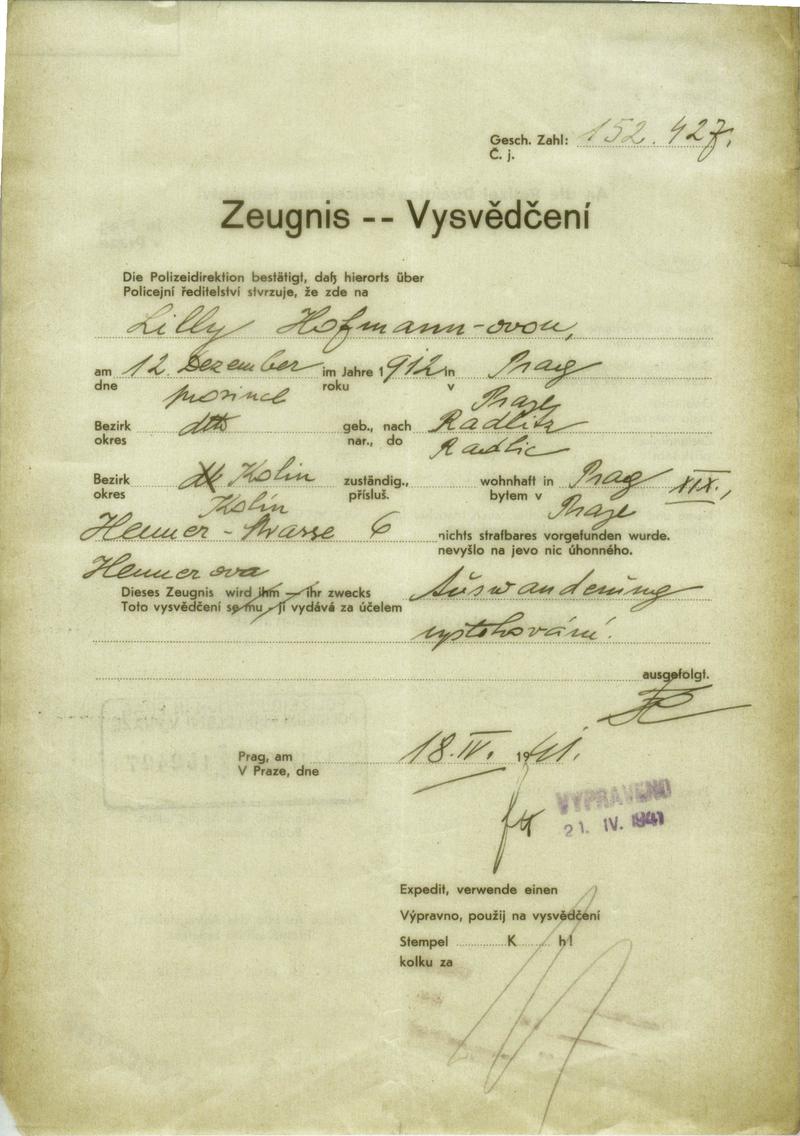 Gesch. Zahl: 152.427.
Č. j.
Zeugnis -- Vysvědčení
Die Polizeidirektion bestätigt, daß hierorts über
Policejní ředitelství stvrzuje, že zde na
Lilly Hofmann-ovou,
am 12. Dezember im Jahre 1912 in Prag
dne prosince roku v Praze
Bezirk dtto geb., nach Radlitz
okres nar., do Radlic
Bezirk Kolin zuständig., wohnhaft in Prag XIX.,
okres Kolín přísluš. bytem v Praze
Hermer-Strasse 6 nichts strafbares vorgefunden wurde.
nevyšlo na jevo nic úhonného.
Hermerova
Dieses Zeugnis wird ihm — ihr zwecks Auswanderung
Toto vysvědčení se mu - jí vydává za účelem
vystěhování.
ausgefolgt.
Prag, am 18. IV. 1941.
V Praze, dne
VYPRAVENO
21. IV. 1941
Expedit, verwende einen
Výpravno, použij na vysvědčení
Stempel K h!
kolku za